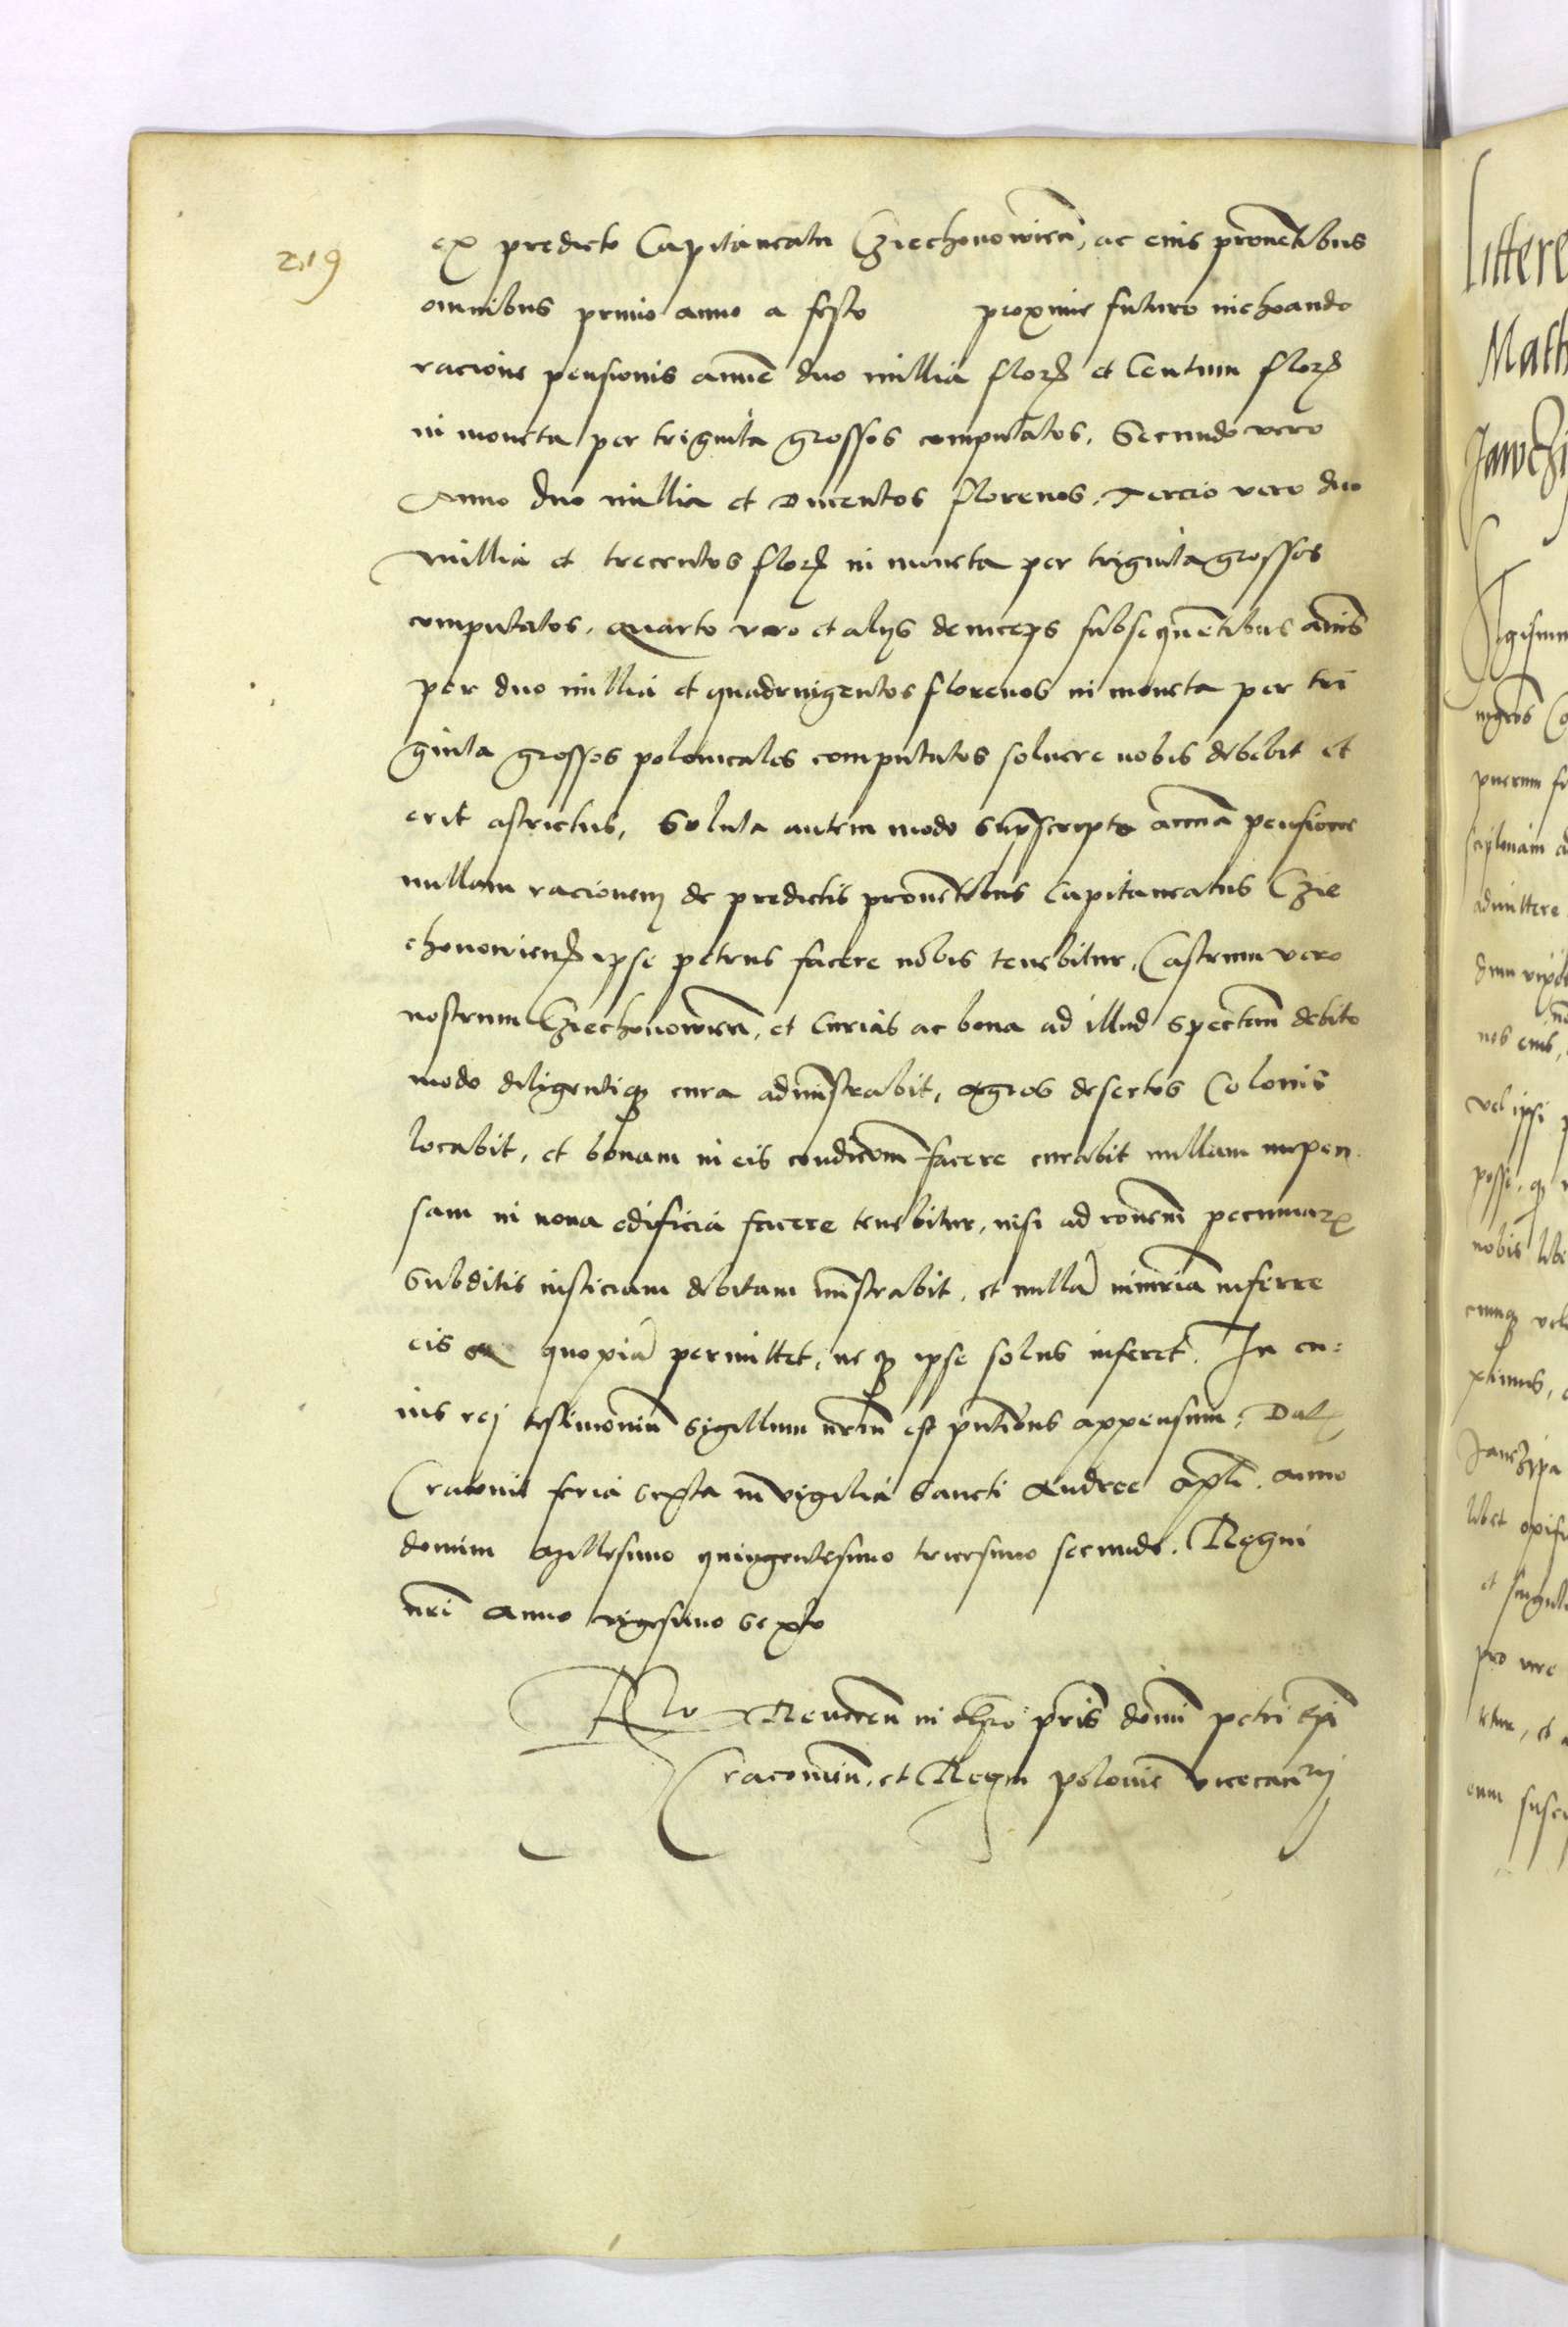 219
ex predicto Capitaneatu Cziechonowien, ac eius proventibus
omnibus primo anno a festo proxime futuro inchoando
racione pensionis annue duo millia flor et Centum flor
in moneta per triginta grossos computatos, Secundo vero
Anno duo millia et Ducentos florenos, Tercio vero duo
millia et trecentos flor in moneta per triginta grossos
computatos, quarto vero et alijs deinceps subsequentibus annis
per duo millia et quadringentos florenos in moneta per tri
ginta grossos polonicales computatos solvere nobis debebit et
erit astrictus, Soluta autem modo suprascripto annua pensione
nullam racionem de predictis proventibus Capitaneatus Czie
chonowien ipse petrus facere nobis tenebitur, Castrum vero
nostrum Cziechonowien, et Curias ac bona ad illud spectan debito
modo diligentique cura administrabit, agros desertos Colonis
locabit, et bonam in eis condicionem facere curabit nullam impen
sam in nova edificia facere tenebitur, nisi ad racionem pecuniarum
Subditis iusticiam debitam ministrabit, et nullam iniuriam inferre
eis a quopiam permittet, neque ipse solus inferet. In cu=
ius rej testimonium Sigillum nrm est pntibus appensum, Dat
Cracovie feria sexta in vigilia Sancti Andree apli anno
domini Millesimo quingentesimo tricesimo secundo. Regni
nri anno vigesimo sexto
Rlo Reveren in chro pris domini petri epi
Cracovien, et Regni polonie vicecancrij
Littere